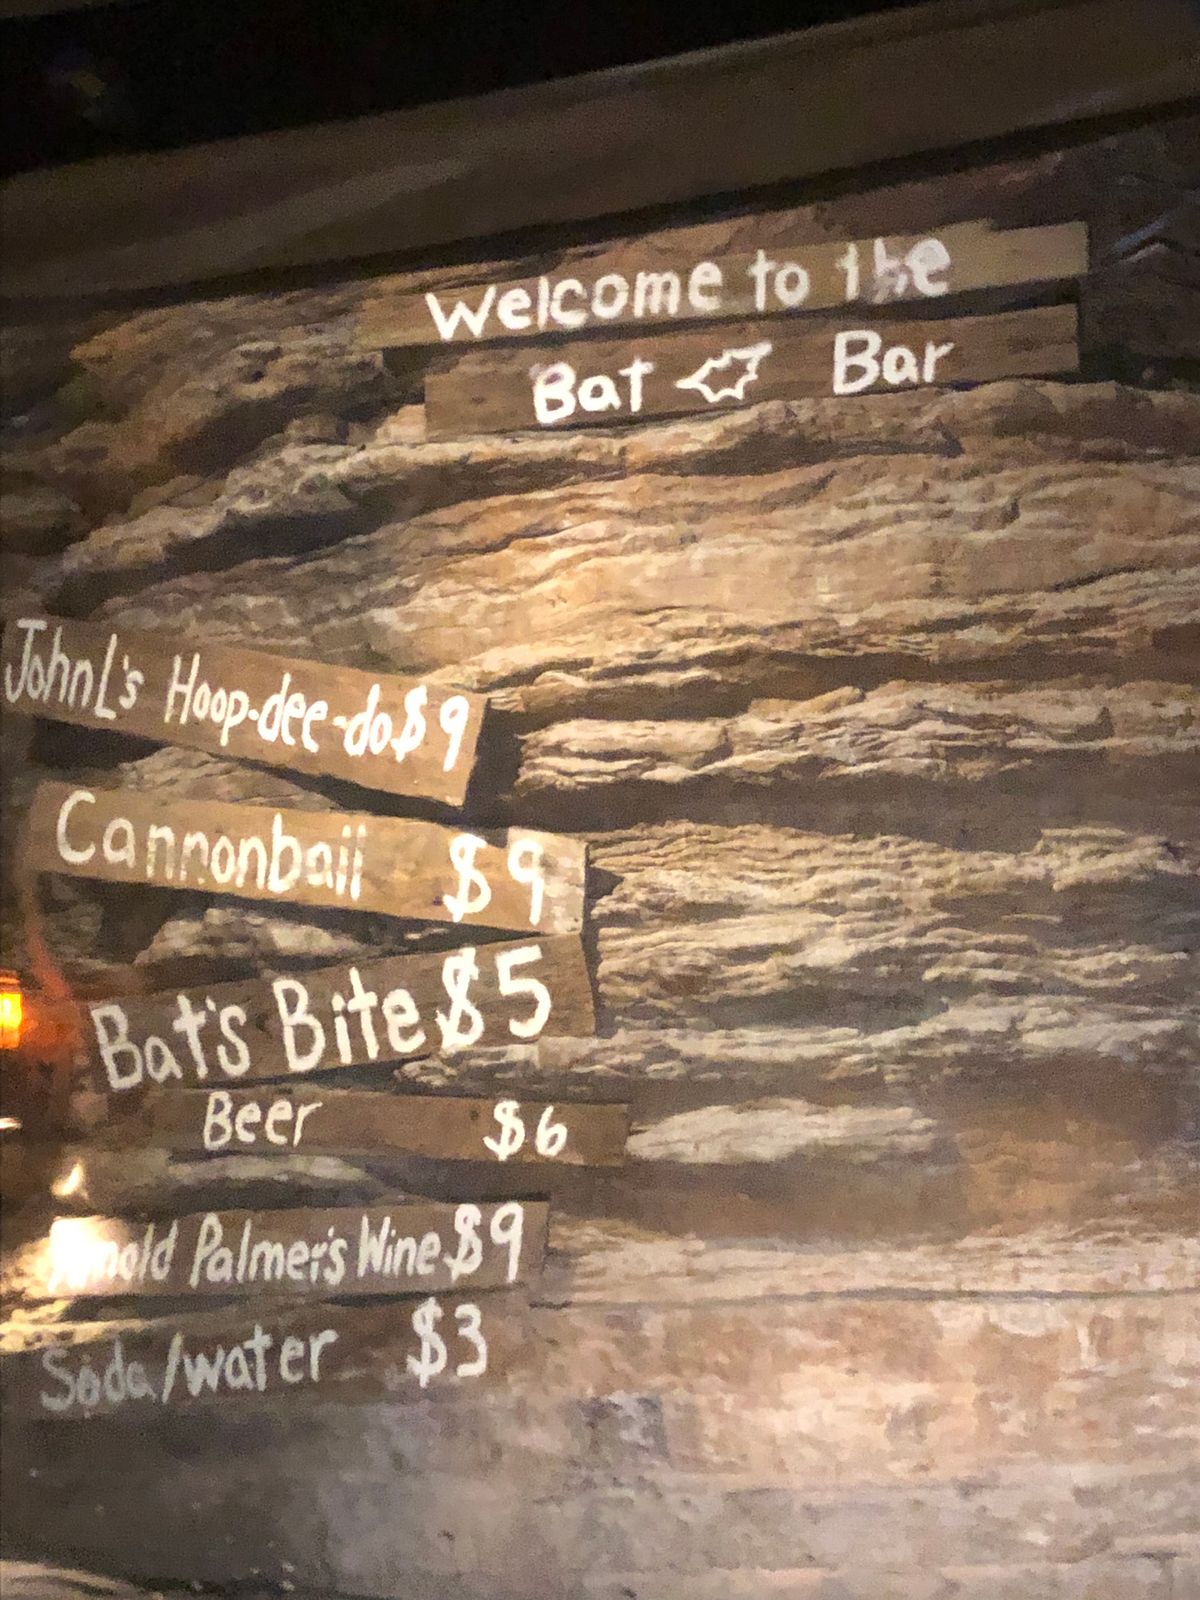 Welcome to the
Bat Bar
JohnL's Hoop-dee-do $9
Cannonball $9
Bat's Bite $5
Beer $6
Arnold Palmer's Wine $9
Soda/water $3